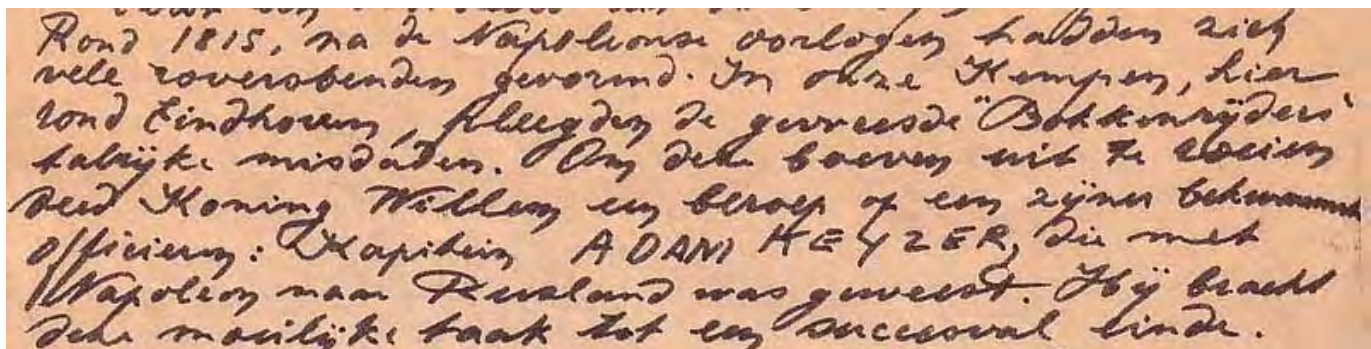 Rond 1815, na de Napoleonse oorlogen hadden zich
vele roversbenden gevormd. In onze Kempen, hier
rond Eindhoven, pleegden de gevreesde "Bokkenrijders"
talrijke misdaden. Om deze boeven uit te roeien
deed Koning Willem een beroep op een zijner bekwaamste
officieren: Kapitein ADAM KEYZER, die met
Napoleon naar Rusland was geweest. Hij bracht
deze moeilijke taak tot een succesvol einde.